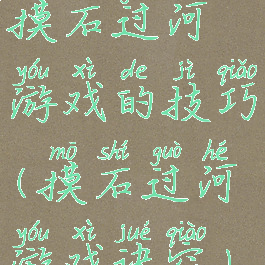 摸石过河
yóu xì de jì qiǎo
游戏的技巧
mō shí guò hé
(摸石过河
yóu xì jué qiào
游戏诀窍)